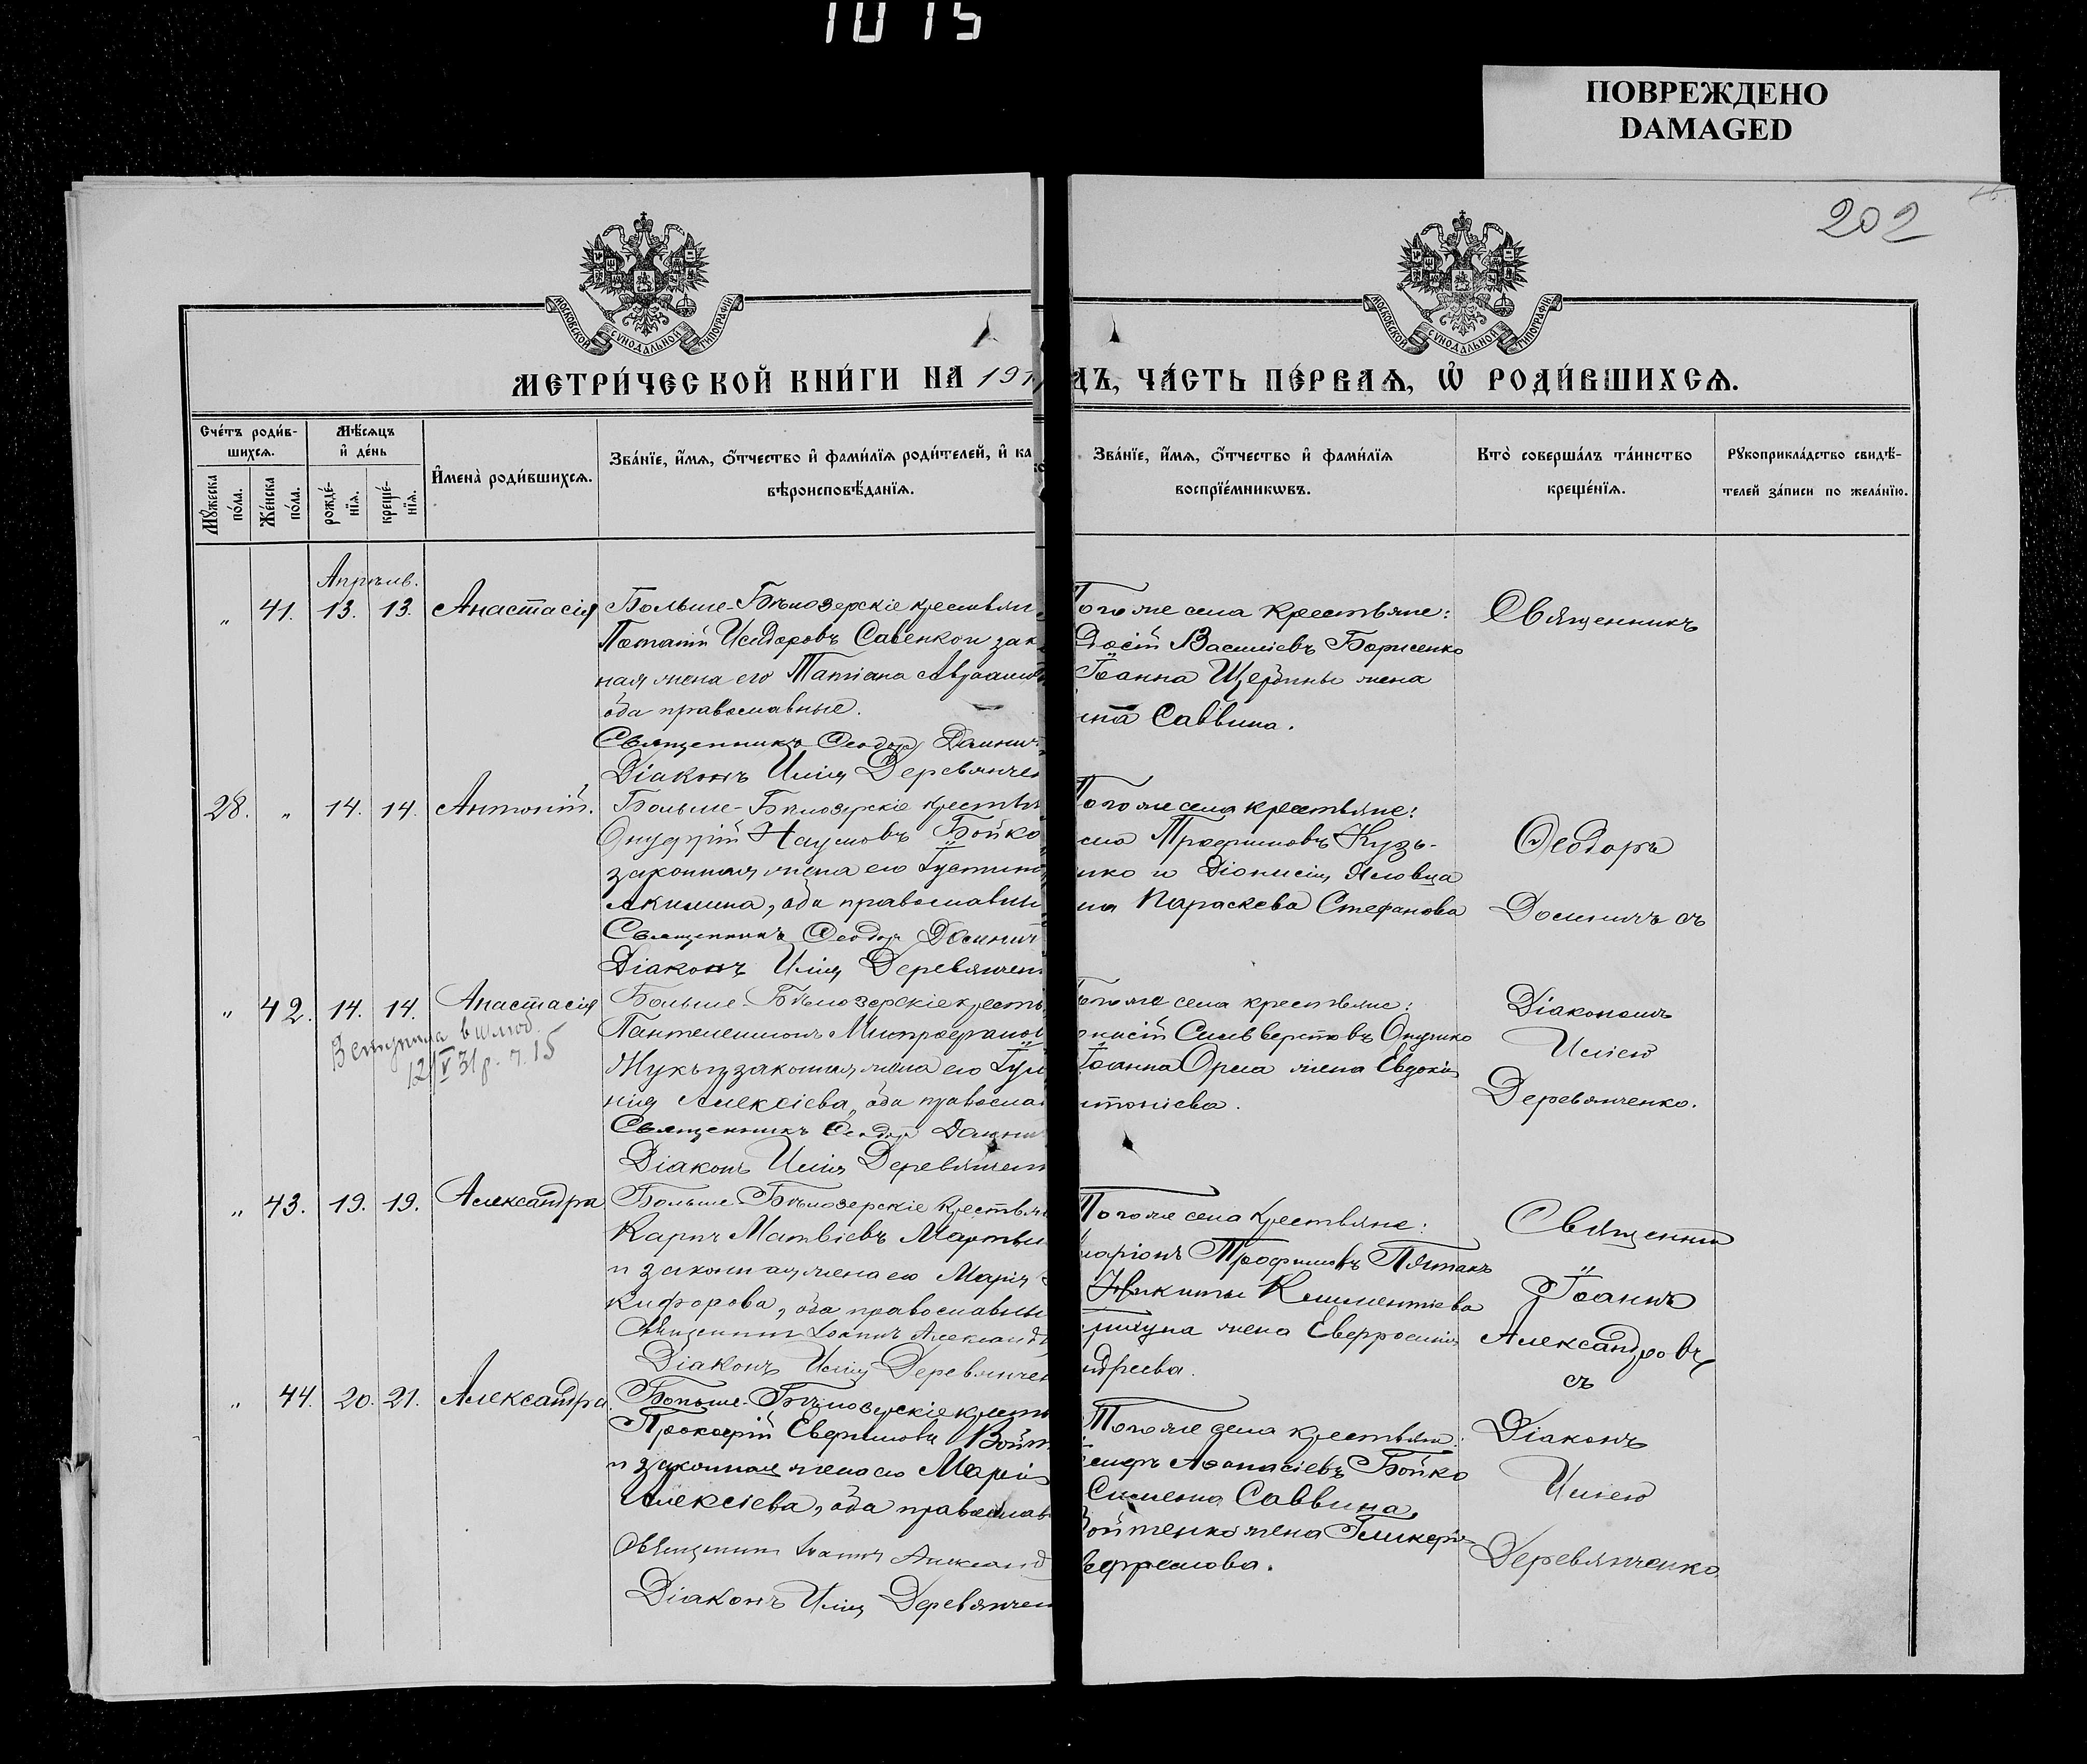 1015
ПОВРЕЖДЕНО
DAMAGED
202
МОСКОВСКОЙ СУНОДАЛЬНОЙ ТИПОГРАФІИ
МОСКОВСКОЙ СУНОДАЛЬНОЙ ТИПОГРАФІИ
МЕТРИ́ЧЕСКОЙ КНИ́ГИ НА 191
ДЪ, ЧА́СТЬ ПЕ́РВАѦ, Ѡ҆ РОДИ́ВШИХСѦ.
Сче́тъ роди́в-
шихсѧ.
Мѣ́сѧцъ
и҆ де́нь
Мꙋ́жеска
по́ла.
Же́нска
по́ла.
рожде́-
нїѧ.
креще́-
нїѧ.
И҆мена̀ роди́вшихсѧ.
Зва́нїе, и҆́мѧ, ѻ҆́тчество и҆ фами́лїѧ роди́телей, и҆ ка
вѣроисповѣ́данїѧ.
Зва́нїе, и҆́мѧ, ѻ҆́тчество и҆ фами́лїѧ
воспрїе́мникѡвъ.
Кто̀ соверша́лъ та́инство
креще́нїѧ.
Рꙋкоприкла́дство свидѣ́-
телей за́писи по жела́нїю.
Апрѣль.
„ 41. 13. 13. Анастасія
Больше-Бѣлозерскіе крестьян
Потапій Исидоровъ Савенко и зак
ная жена его Татіана Авраамо
оба православные.
Священникъ Ѳеодоръ Домнич
Діаконъ Илія Деревянчен
Того же села крестьяне:
Василіевъ Борисенко
Іоанна Щербины жена
Саввина.
Священникъ
28. „ 14. 14. Антоній.
Больше-Бѣлозерскіе крестья
Онуфрій Наумовъ Бойко
законная жена его Іустина
Акилина, оба православны
Священникъ Ѳеодоръ Домнич
Діаконъ Илія Деревянчен
Того же села крестьяне:
Трофимовъ Кузь-
нко и Діонисія Яловца
на Параскева Стефанова
Ѳеодоръ
Домничъ съ
„ 42. 14. 14. Анастасія
Вступила в шлюб.
12/V 31 р. ч. 15
Больше-Бѣлозерскіе кресть
Пантелеимонъ Митрофанов
Жукъ и законная жена его Іул
нія Алексіева, оба правосла
Священникъ Ѳеодоръ Домни
Діаконъ Илія Деревянчен
Того же села крестьяне:
Сильверстовъ
Іоанна Орла жена Евдокія
нтоніева.
Діакономъ
Иліею
Деревянченко.
„ 43. 19. 19. Александра
Больше-Бѣлозерскіе крестья
Карпъ Матвіевъ Марты
и законная жена его Марія
кифорова, оба православны
Священникъ Іоаннъ Александ
Діаконъ Илія Деревянчен
Того же села крестьяне:
ларіонъ Трофимовъ Пятакъ
Никиты Климентіева
жена Евфросинія
ндреева.
Священник
Іоаннъ
Александровъ
съ
„ 44. 20. 21. Александра
Больше-Бѣлозерскіе кресть
Прокофій Евфимовъ Войт
и законная жена его Марія
Алексіева, оба православ
Священникъ Іоаннъ Александ
Діаконъ Илія Деревянчен
Того же села крестьяне:
Аѳанасіевъ Бойко
Симеона Саввина
ойтенко жена Гликерія
Ефремова.
Діаконъ
Иліею
Деревянченко